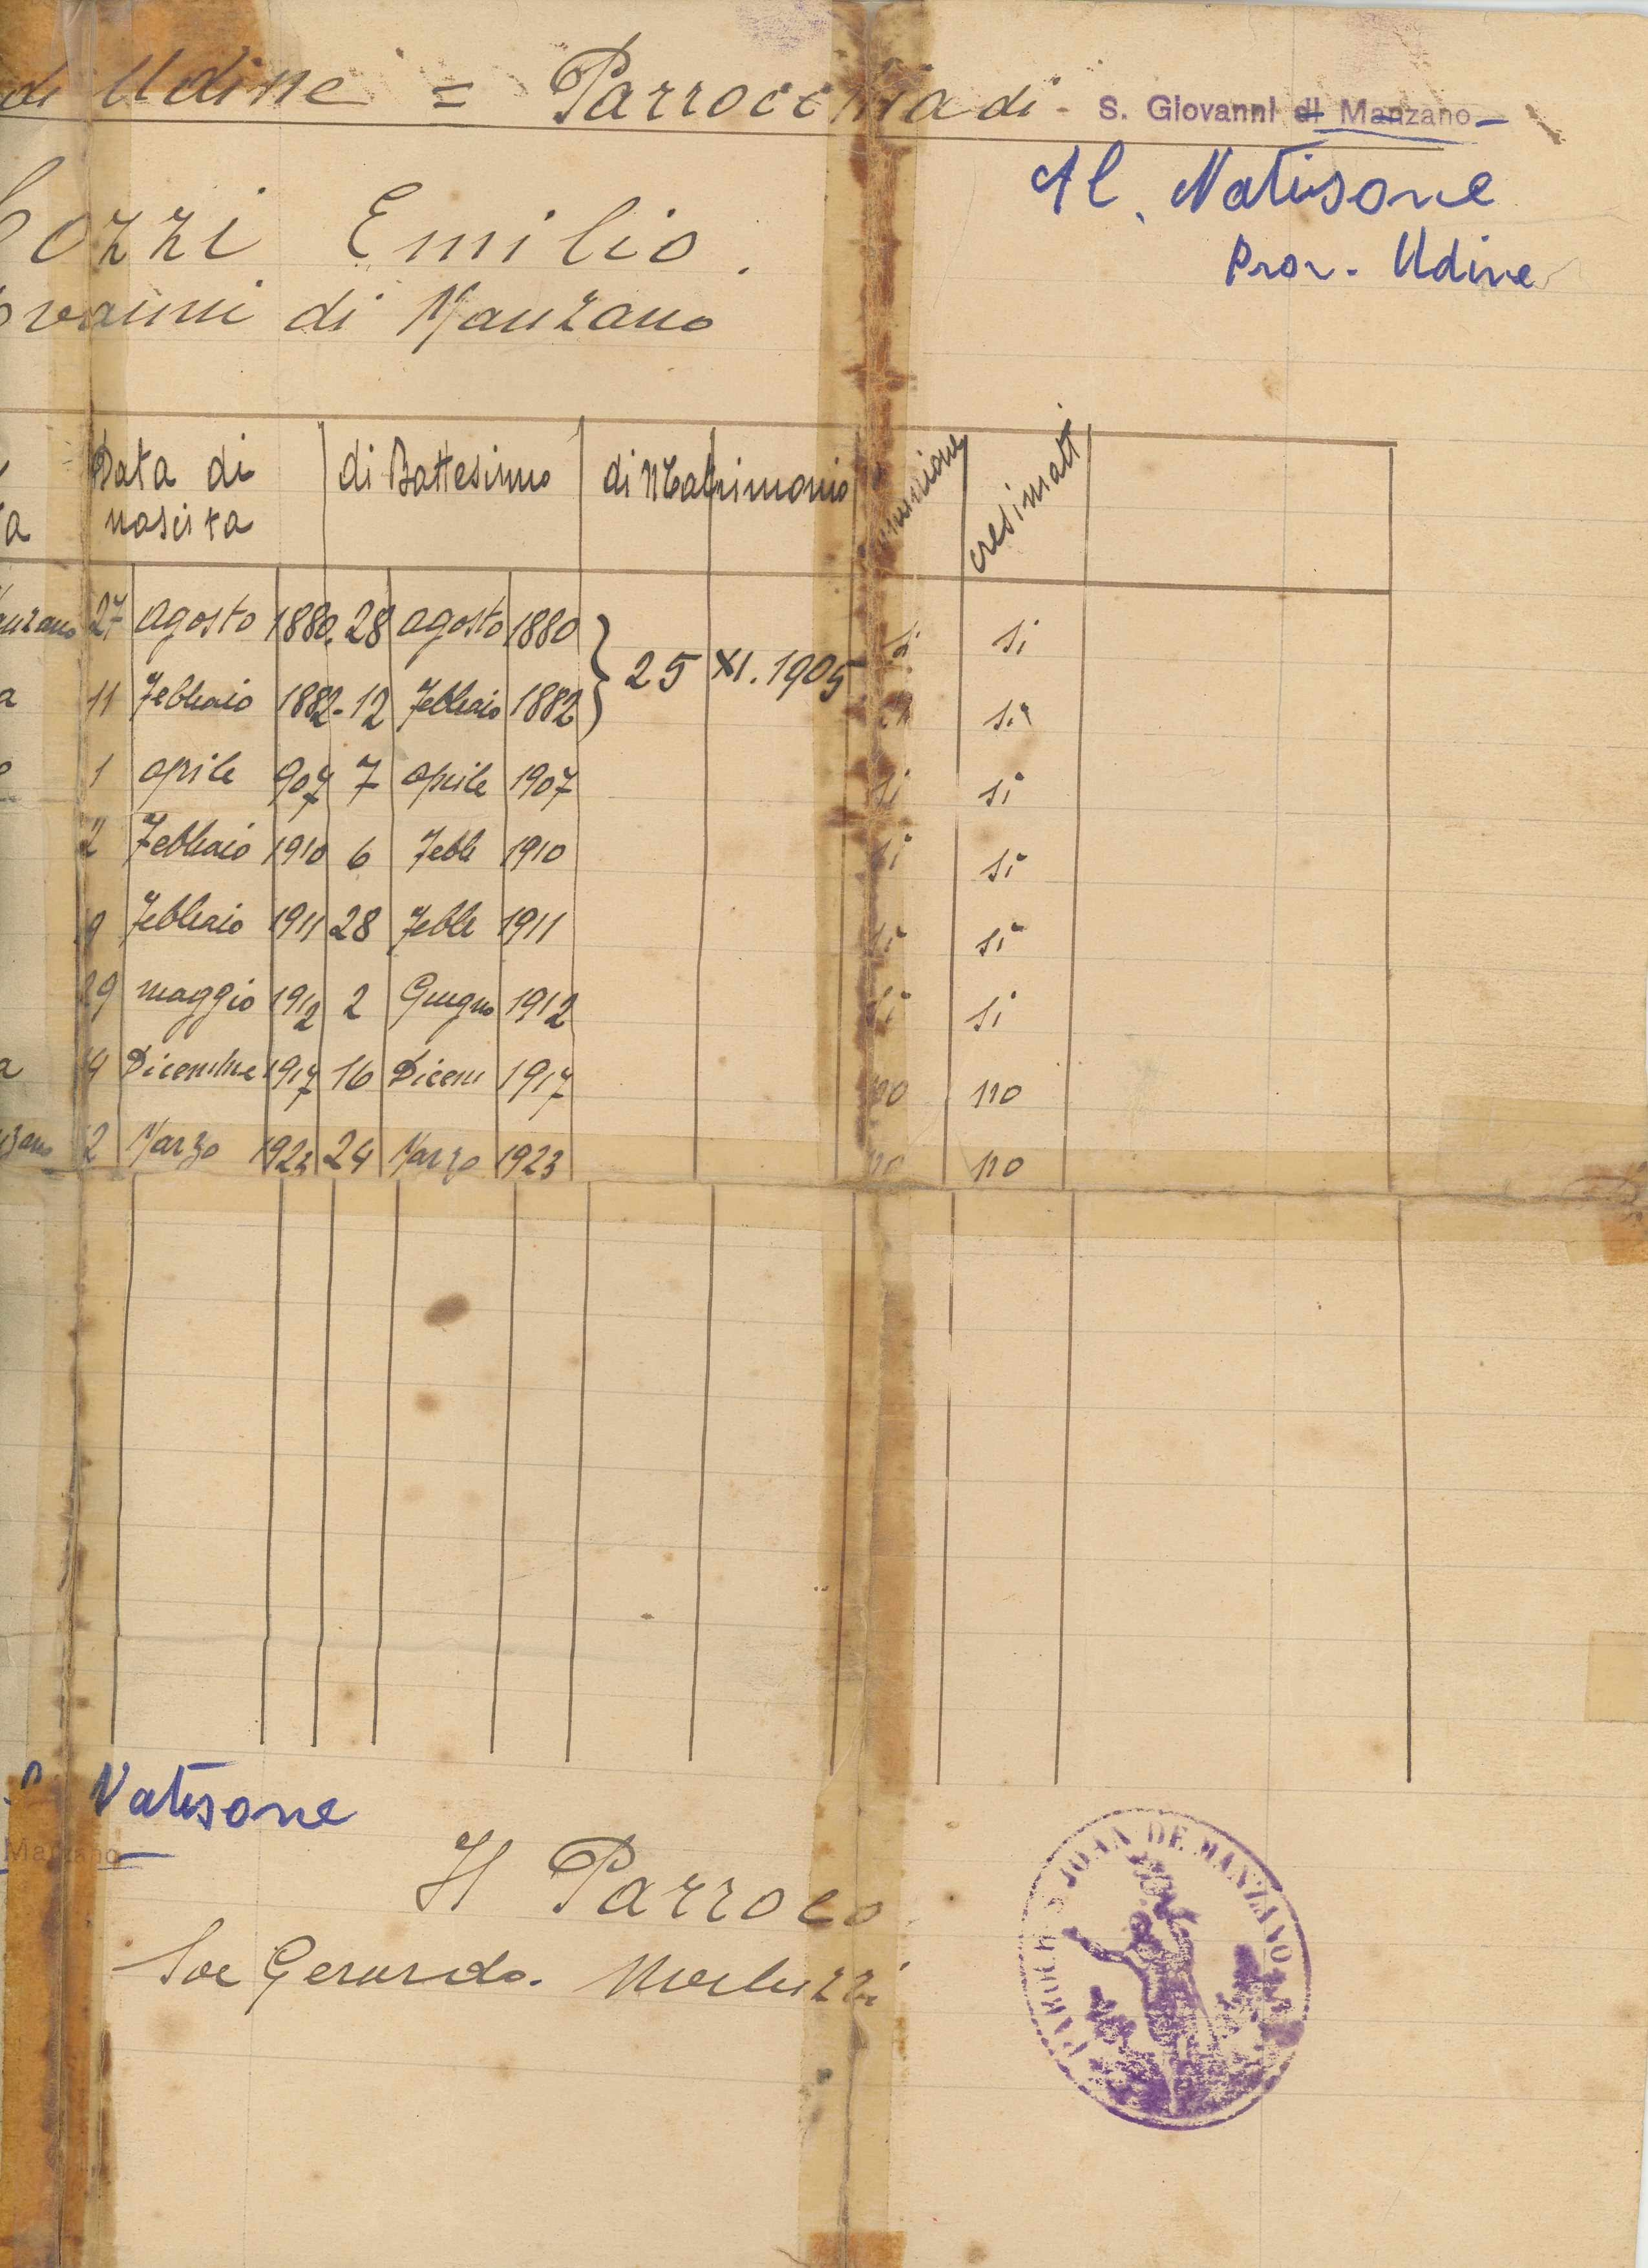 di Udine = Parrocchia di - S. Giovanni di Manzano -
Al Natisone
Prov. Udine
Cozzi Emilio.
ovanni di Manzano
Data di nascita di Battesimo di Matrimonio comunione cresimati
a
anzano 27 agosto 1880. 28 agosto 1880 25 XI. 1905 si si
a 11 Febbraio 1882. 12 Febbraio 1882 si si
o 1 aprile 907 7 aprile 1907 si si
2 Febbraio 1910 6 Febb 1910 si si
9 Febbraio 1911 28 Febb 1911 si si
29 maggio 1912 2 Giugno 1912 si si
a 9 Dicembre 1917 16 Dicem 1917 no no
12 Marzo 1923 24 Marzo 1923 no no
Natisone
Manzano
Il Parroco
Sac Gerardo.
PAROCH. S. JOAN DE MANZANO